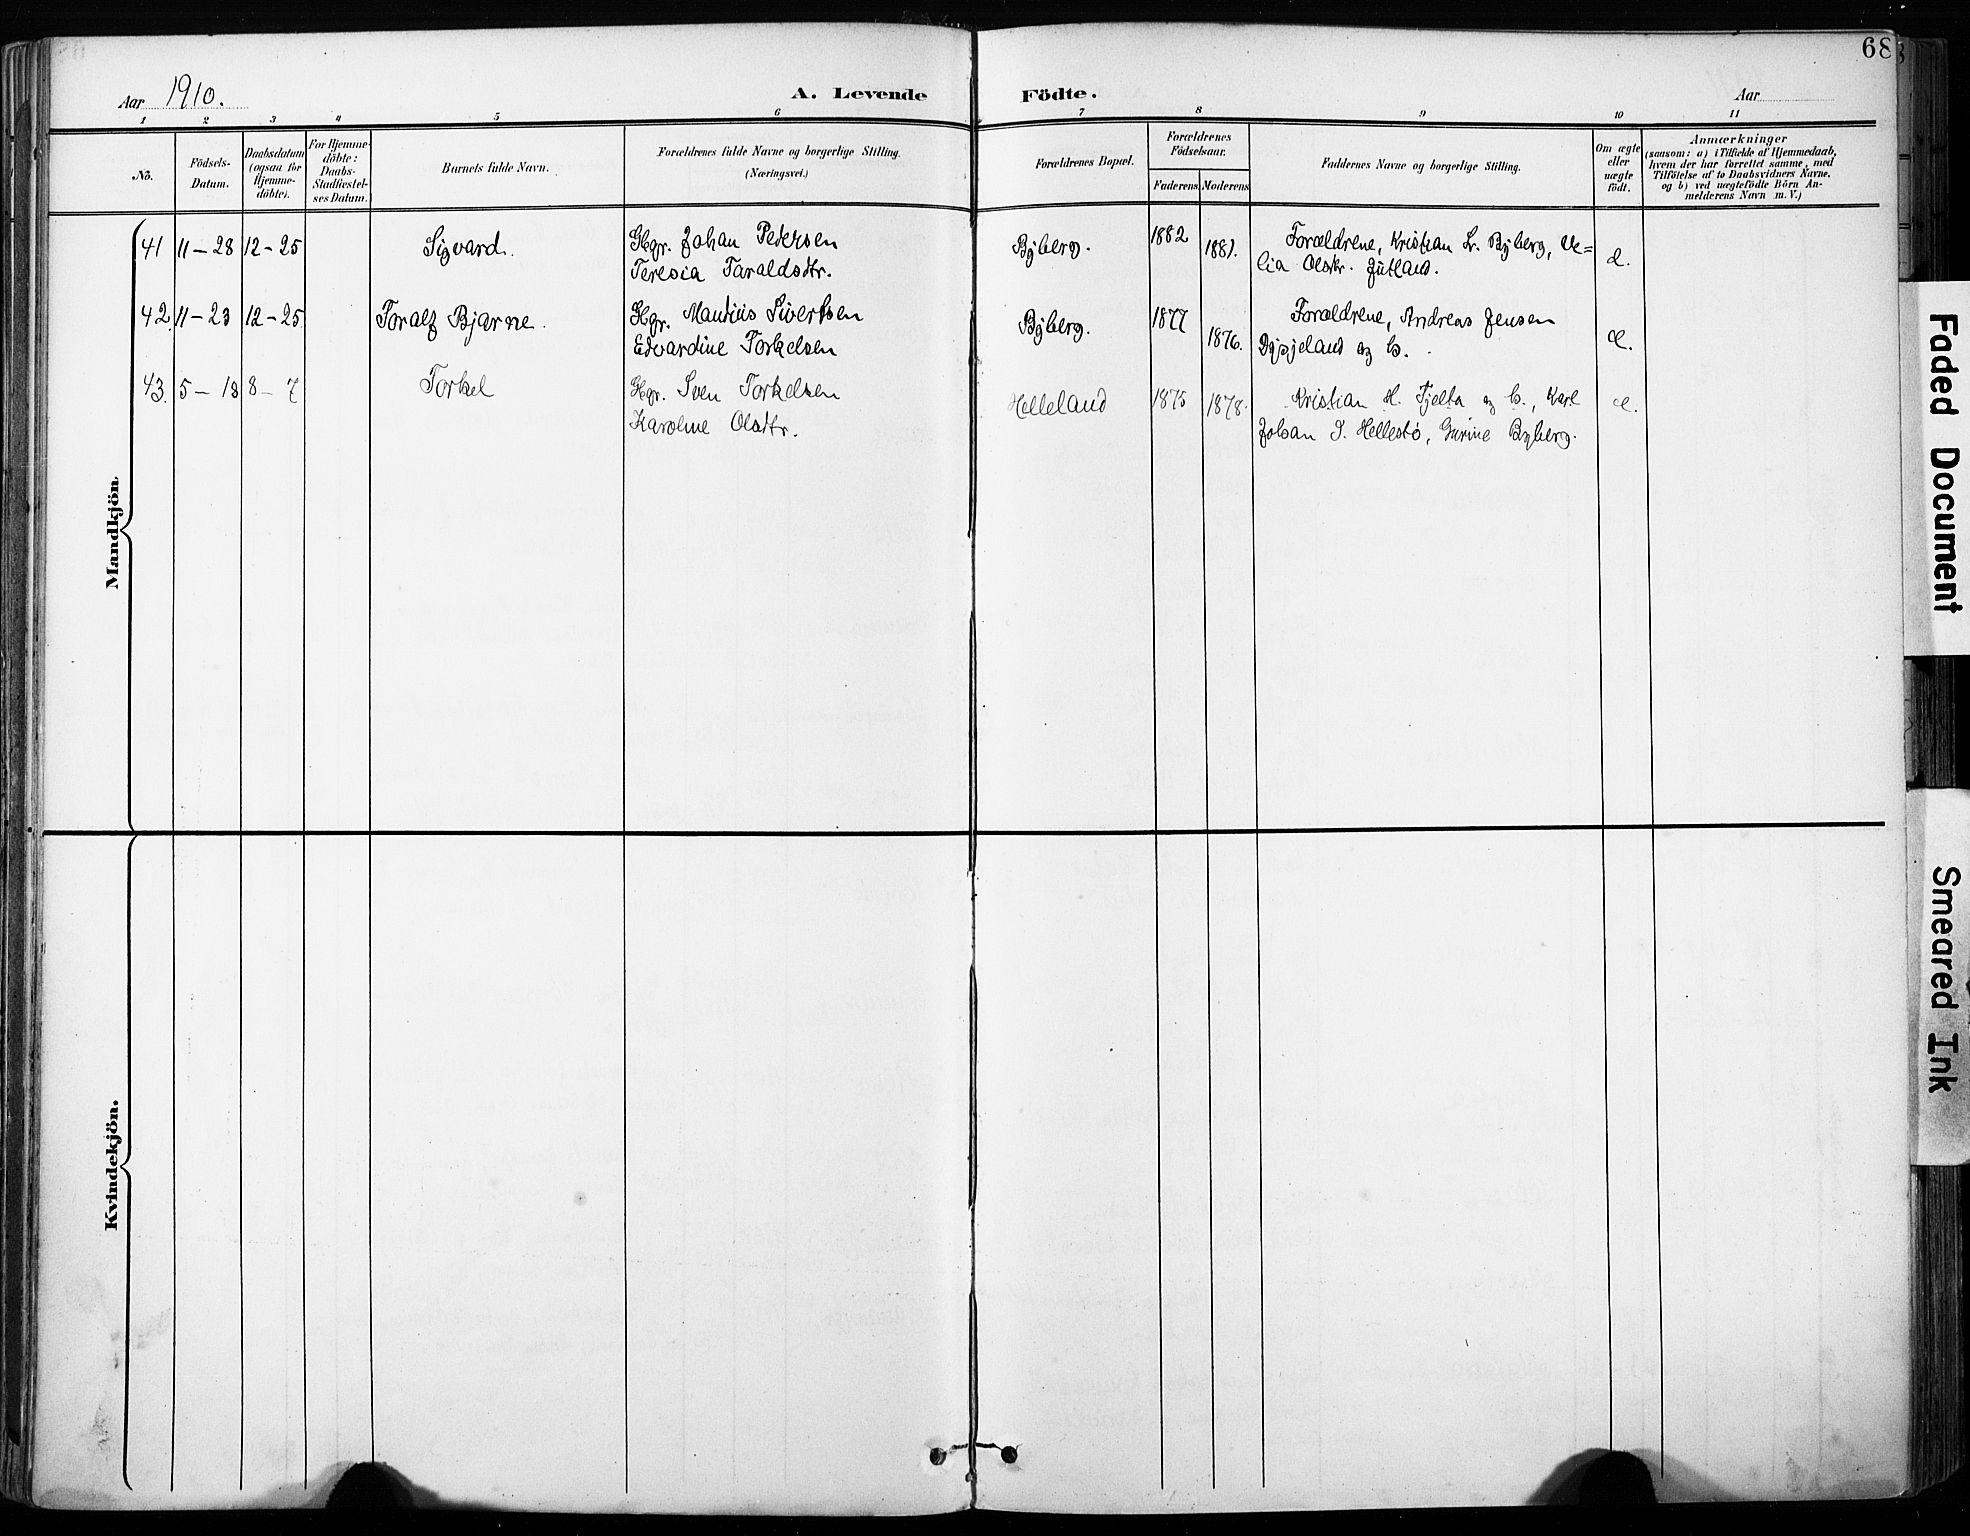 68
Aar 1910.
A. Levende Födte.
Aar
1 2 3 4 5 6 7 8 9 10 11
No.
Födsels-
Datum.
Daabsdatum
(ogsaa for
Hjemme-
döbte).
For Hjemme-
döbte:
Daabs-
Stadfæstel-
ses Datum.
Barnets fulde Navn.
Forældrenes fulde Navne og borgerlige Stilling.
(Næringsvei.)
Forældrenes Bopæl.
Forældrenes
Födselsaar.
Faderens Moderens
Faddernes Navne og borgerlige Stilling.
Om ægte
eller
uægte
födt.
Anmærkninger
(saasom: a) i Tilfælde af Hjemmedaab,
hvem der har forrettet samme, med
Tilföielse af to Daabsvidners Navne,
og b) ved uægtefödte Börn An-
melderens Navn m. V.)
Mandkjön.
41 11-28 12-25 Sigvard. Gbgr. Johan Pedersen Byberg. 1882 1881. Forældrene, Kristian Byberg,
Teresia Taraldsdtr. Jutland.
42. 11-23 12-25 Toralf Bjarne. Gbgr. Mauritius Sivertsen Byberg. 1877 1876. Forældrene, Andreas Jensen
Edvardine Torkelsen Dysjeland og
43. 5-18 8-7 Torkel Gbgr. Sven Torkelsen Helleland 1875 1878. Kristian H. Tjelta og Karl
Karoline Olsdtr. Johan S. Hellestø, Gurine Byberg.
Kvindekjön.
Faded Document
Smeared Ink